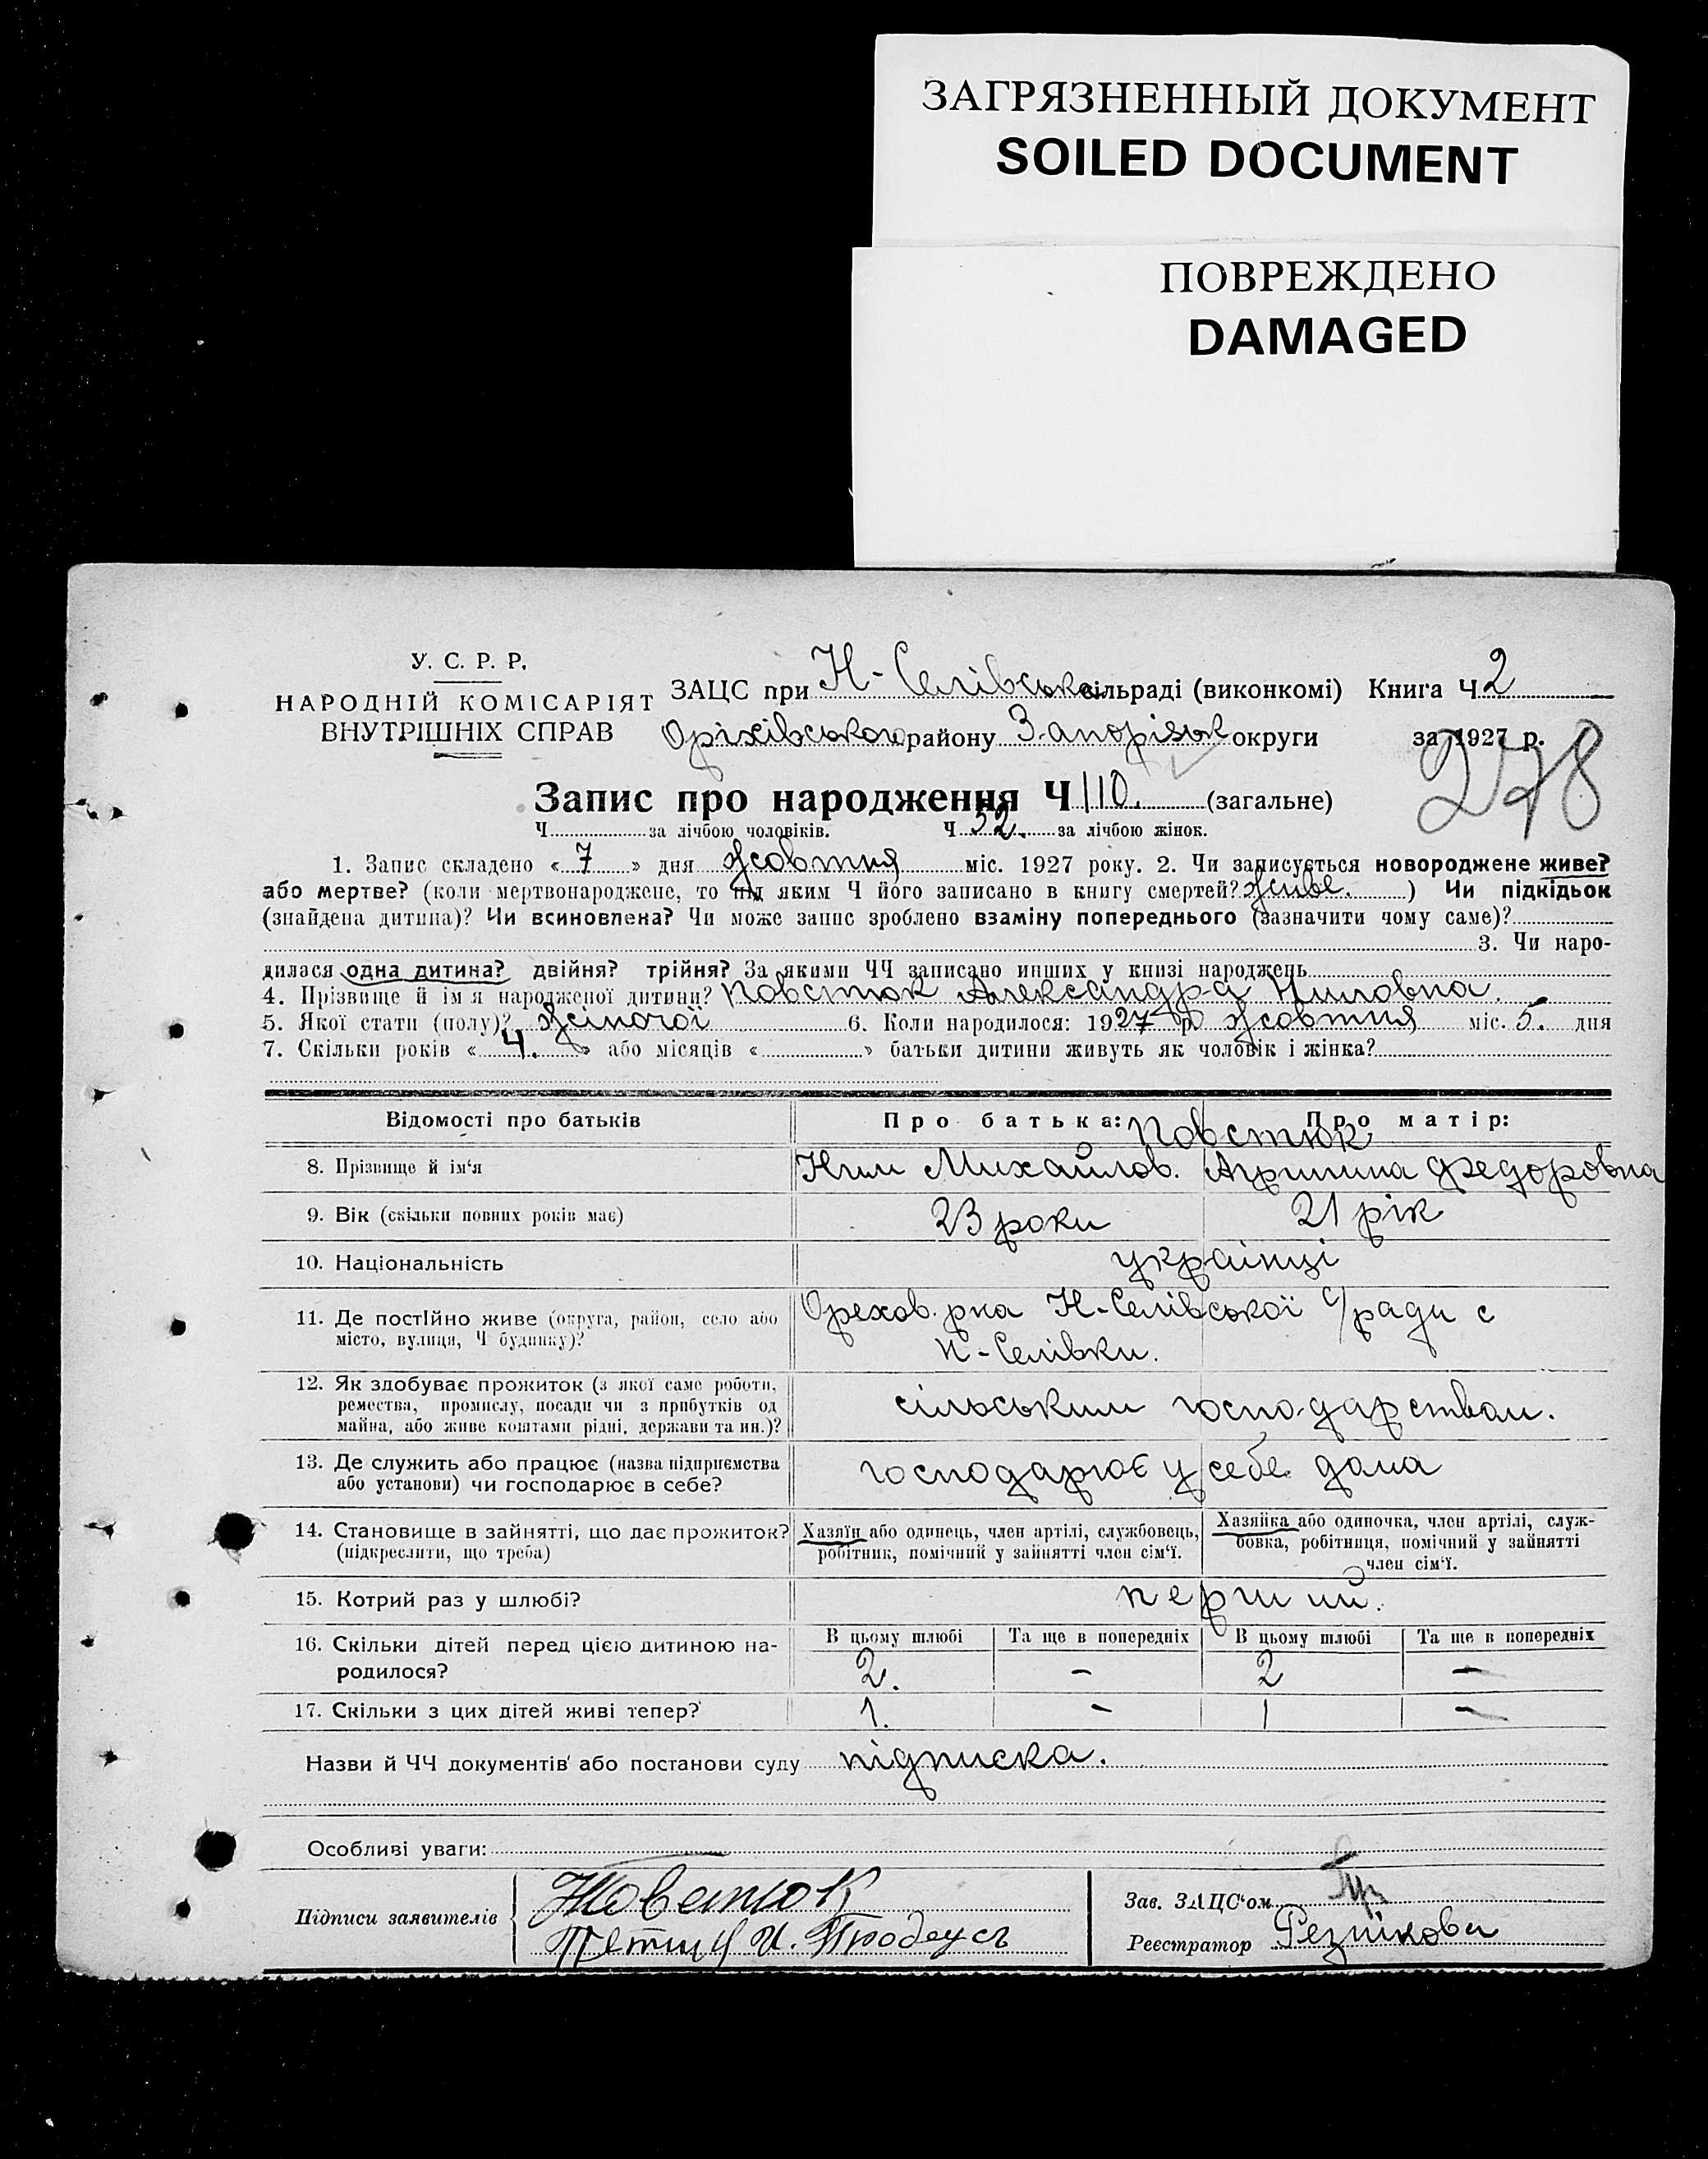 ЗАГРЯЗНЕННЫЙ ДОКУМЕНТ
SOILED DOCUMENT
ПОВРЕЖДЕНО
DAMAGED
У. С. Р. Р.
НАРОДНІЙ КОМІСАРІЯТ
ВНУТРІШНІХ СПРАВ
ЗАЦС при Н-Селівська сільраді (виконкомі) Книга Ч 2
Оріхівського району Запорізьк округи за 1927 р.
278
Запис про народження Ч 110. (загальне)
Ч за лічбою чоловіків. Ч 52. за лічбою жінок.
1. Запис складено « 7 » дня жовтня міс. 1927 року. 2. Чи записується новороджене живе?
або мертве? (коли мертвонароджене, то під яким Ч його записано в книгу смертей? живе. ) Чи підкідьок
(знайдена дитина)? Чи всиновлена? Чи може запис зроблено взаміну попереднього (зазначити чому саме)?
3. Чи наро-
дилася одна дитина? двійня? трійня? За якими ЧЧ записано инших у книзі народжень
4. Прізвище й ім'я народженої дитини? Повстюк Александра Ниловна.
5. Якої стати (полу)? жіночої 6. Коли народилося: 1927 р жовтня міс. 5. дня
7. Скільки років « 4. » або місяців « » батьки дитини живуть як чоловік і жінка?
Відомості про батьків Про батька: Повстюк Про матір:
8. Прізвище й ім'я Нил Михайлов. Агрипина Федоровна
9. Вік (скільки повних років має) 23 роки 21 рік
10. Національність українці
11. Де постІйно живе (округа, район, село або Орехов. рна Н-Селівської с/ради с
місто, вулиця, Ч будинку)? Н-Селівки.
12. Як здобуває прожиток (з якої саме роботи,
ремества, промислу, посади чи з прибутків од сільським господарством.
майна, або живе коштами рідні, держави та ин.)?
13. Де служить або працює (назва підприємства господарює у себе дома
або установи) чи господарює в себе?
14. Становище в зайнятті, що дає прожиток? Хазяїн або одинець, член артілі, службовець, Хазяйка або одиночка, член артілі, служ-
(підкреслити, що треба) робітник, помічний у зайнятті член сім'ї. бовка, робітниця, помічний у зайнятті
член сім'ї.
15. Котрий раз у шлюбі? перший.
16. Скільки дітей перед цією дитиною на- В цьому шлюбі Та ще в попередніх В цьому шлюбі Та ще в попередніх
родилося? 2. – 2 –
17. Скільки з цих дітей живі тепер? 1. – 1 –
Назви й ЧЧ документів або постанови суду підписка.
Особливі уваги:
Підписи заявителів Повстюк Зав. ЗАЦС'ом
И. Реєстратор Резнікова